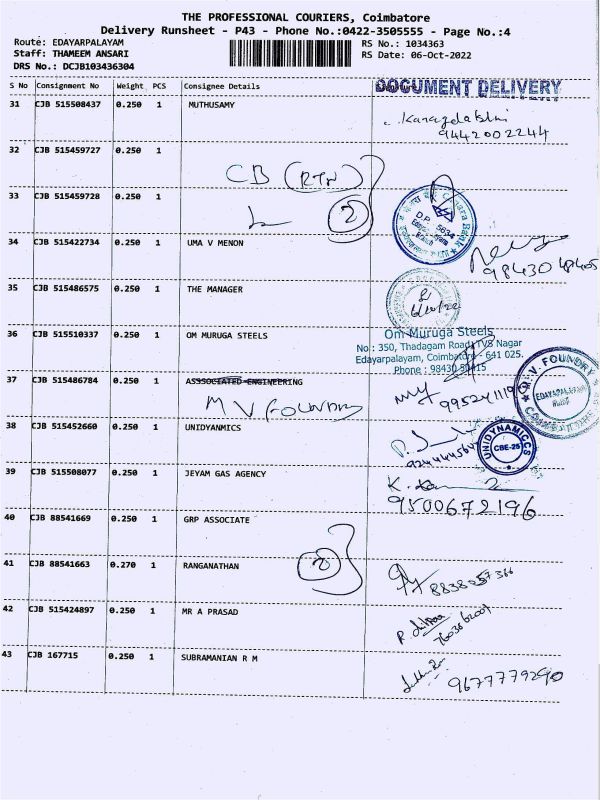 THE PROFESSIONAL COURIERS, Coimbatore
Delivery Runsheet - P43 - Phone No.:0422-3505555 - Page No.:4
Route: EDAYARPALAYAM
Staff: THAMEEM ANSARI
DRS No.: DCJB103436304
RS No.: 1034363
RS Date: 06-Oct-2022
S No Consignment No Weight PCS Consignee Details
DOCUMENT DELIVERY
31 CJB 515508437 0.250 1 MUTHUSAMY
9442002244
32 CJB 515459727 0.250 1
CB (RTN)
33 CJB 515459728 0.250 1
2
Canara Bank
D.P. 5634
34 CJB 515422734 0.250 1 UMA V MENON
35 CJB 515486575 0.250 1 THE MANAGER
36 CJB 515510337 0.250 1 OM MURUGA STEELS
Om Muruga Steels
No : 350, Thadagam Road, TVS Nagar
Edayarpalayam, Coimbatore - 641 025.
Phone : 98430
37 CJB 515486784 0.250 1 ASSSOCIATED ENGINEERING
M V FOUNDRY
M.V. FOUNDRY
EDAYARPALAYAM
38 CJB 515452660 0.250 1 UNIDYANMICS
UNIDYNAMICCS
CBE-25
39 CJB 515508077 0.250 1 JEYAM GAS AGENCY
9500672196
40 CJB 88541669 0.250 1 GRP ASSOCIATE
2
41 CJB 88541663 0.270 1 RANGANATHAN
42 CJB 515424897 0.250 1 MR A PRASAD
43 CJB 167715 0.250 1 SUBRAMANIAN R M
9677779290